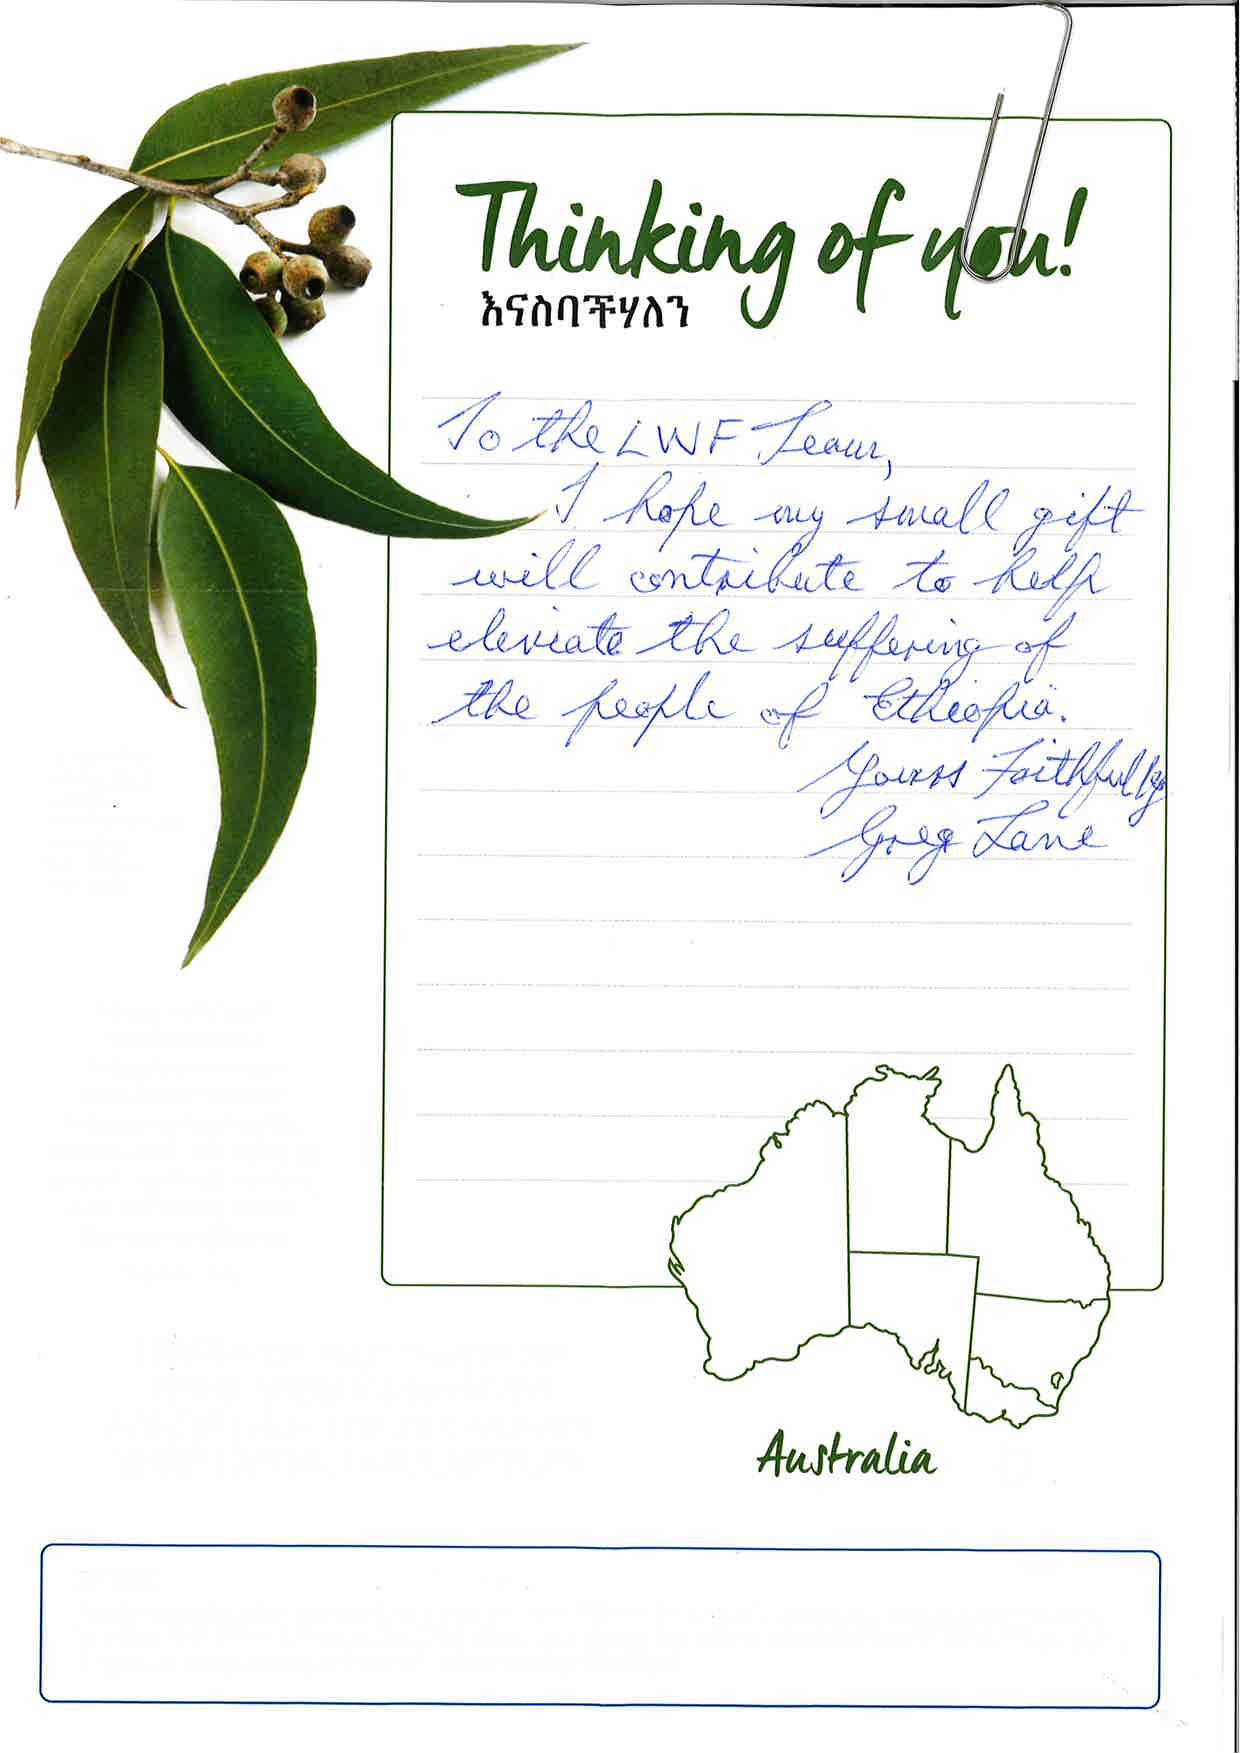 Thinking of you!
እናስባችሃለን
To the LWF Team,
I hope my small gift
will contribute to help
eleviate the suffering of
the people of Ethiopia.
Yours Faithfully
Greg Lane
Australia